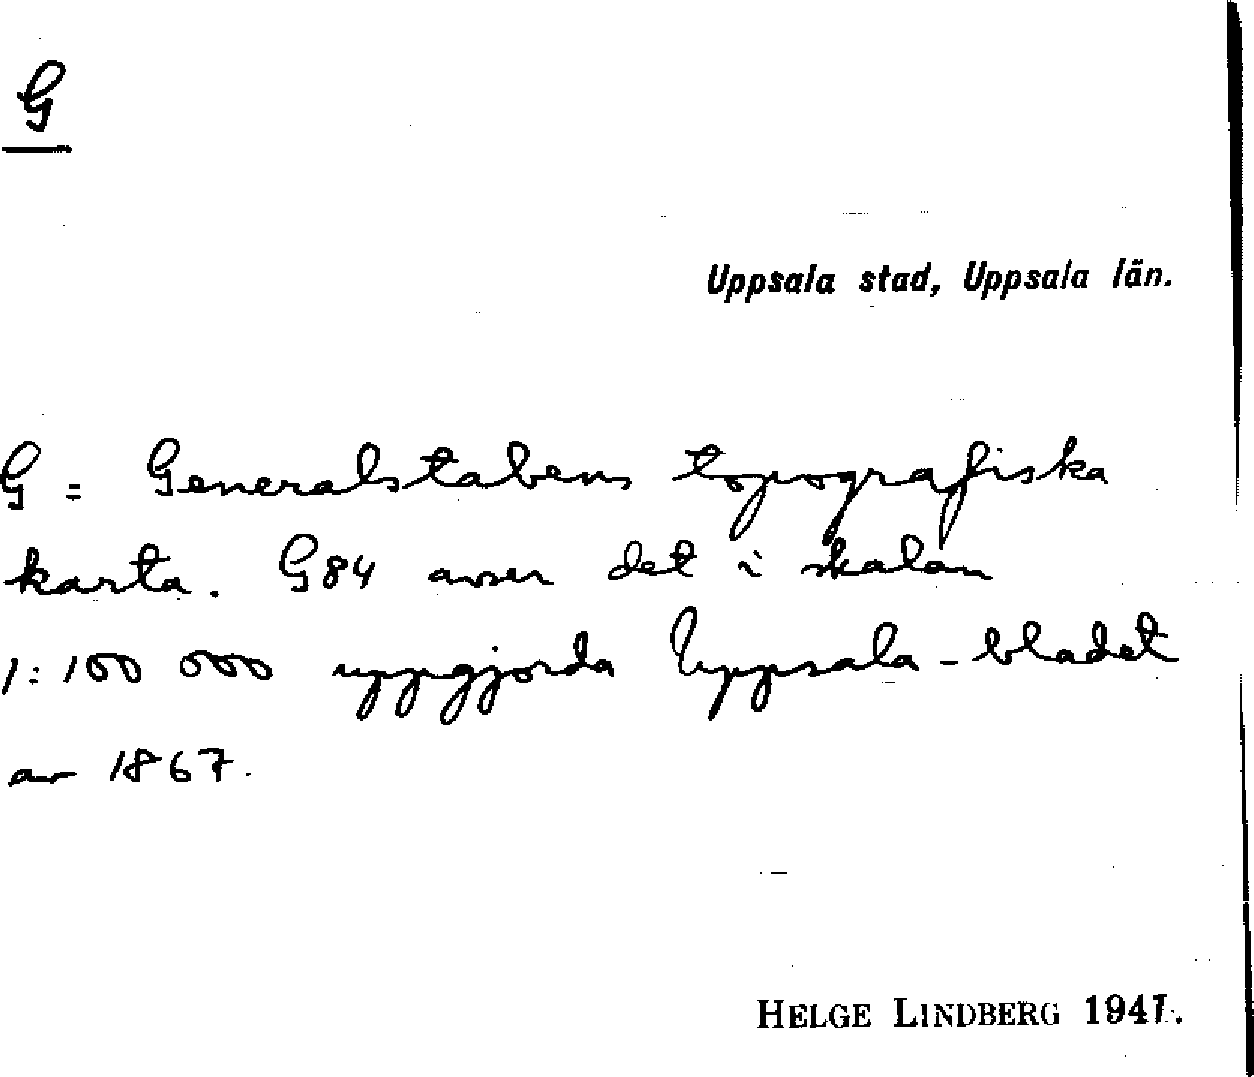 G
Uppsala stad, Uppsala län.
G = Generalstabens topografiska
karta. G84 avser det i skalan
1:100 000 uppgjorda Uppsala-bladet
av 1867.
HELGE LINDBERG 1941.